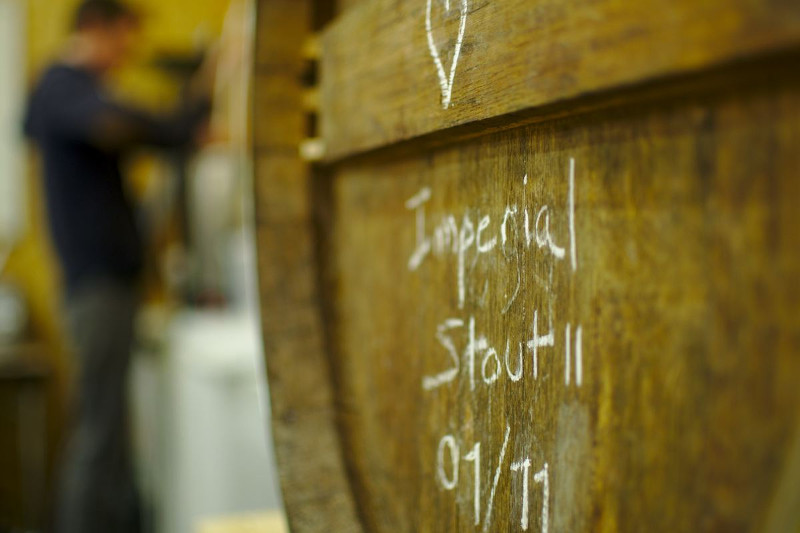 Imperial
Stout II
09/11